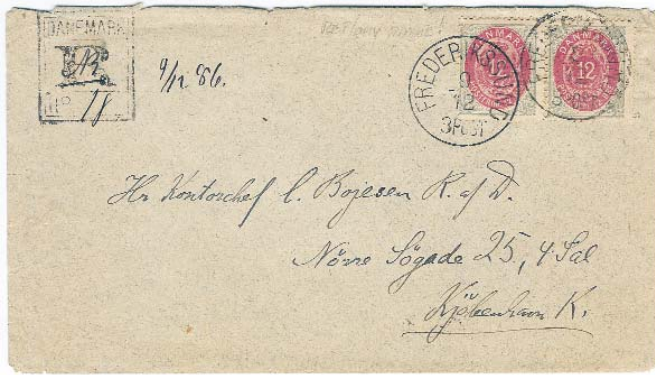 DANEMARK
R
No 18
9/12 86.
FREDERIKSSUND
9
12
3 POST
DANMARK
12
DANMARK
12
Hr Kontorchef C. Bojesen R. af D.
Nörre Sögade 25, 4 Sal
Kjöbenhavn K.